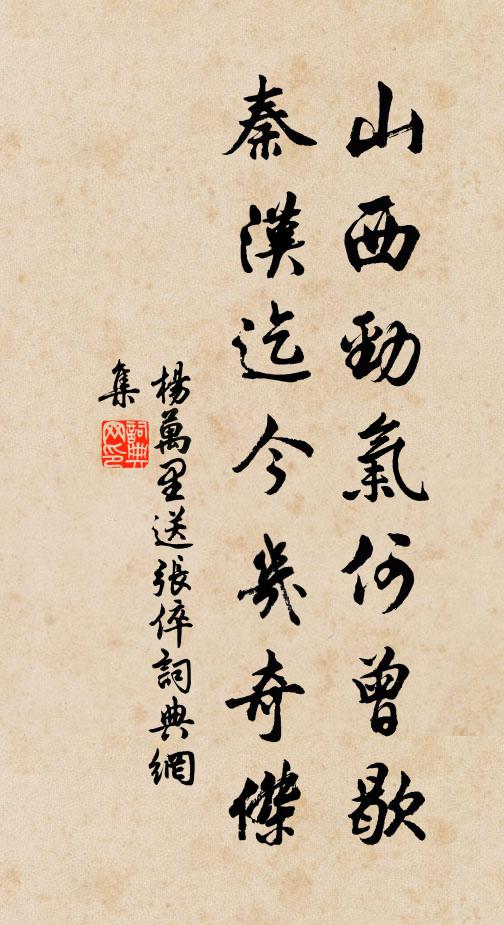 山西勁氣何曾歇
秦漢迄今幾奇傑
楊萬里送張倅詞典網
集
詞典网印